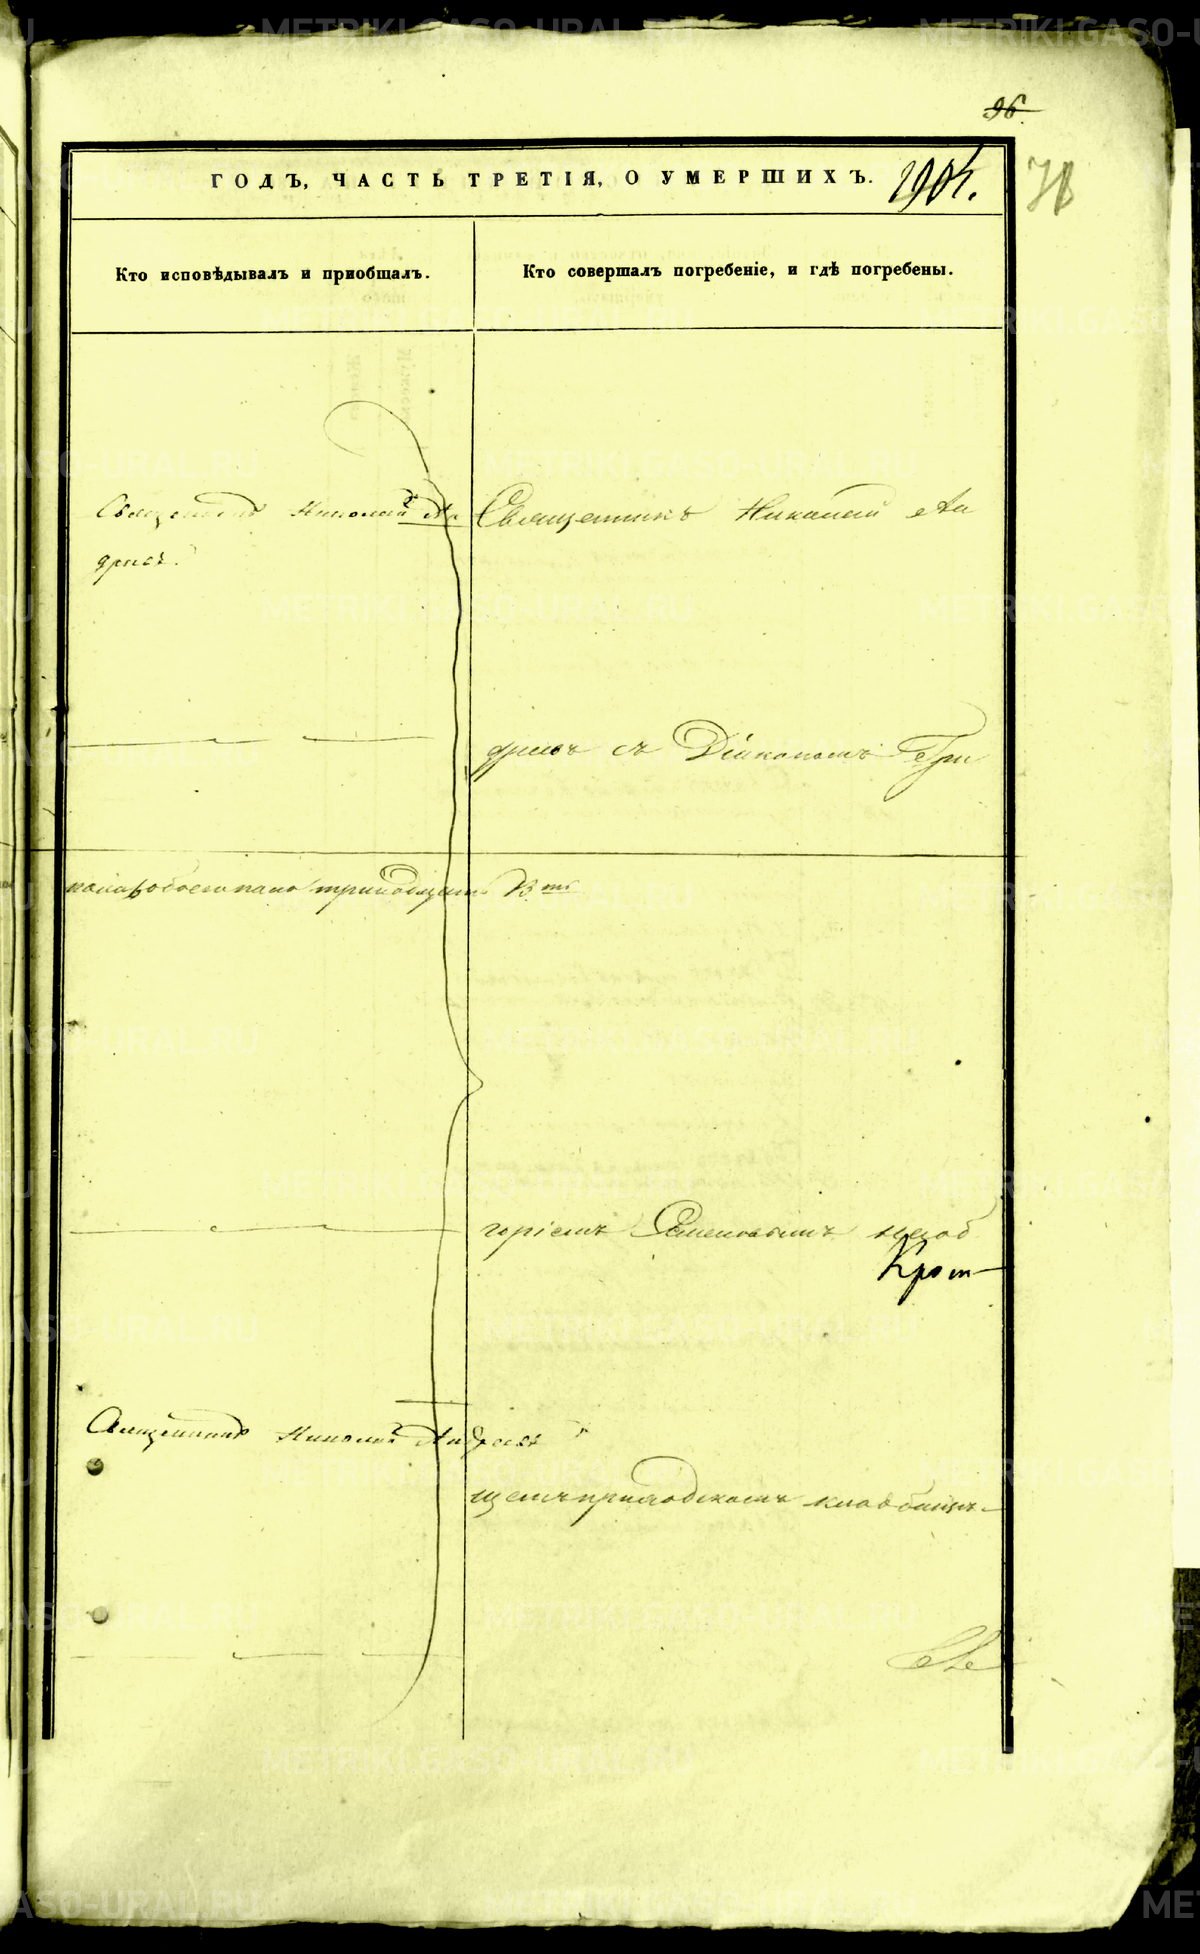 96.
ГОДЪ, ЧАСТЬ ТРЕТІЯ, О УМЕРШИХЪ. 1904.
Кто исповѣдывалъ и приобщалъ.
Кто совершалъ погребеніе, и гдѣ погребены.
Священникъ Николай Ан
дреевъ.
Священникъ Николай Ан
дреевъ съ Діакономъ Гри
обоего пола тринадцать 13
горіемъ Семеновымъ на об
Крот-
Священникъ Николай Андреевъ
щемъ приходскомъ кладбищѣ.
Све
METRIKI.GASO-URAL.RU